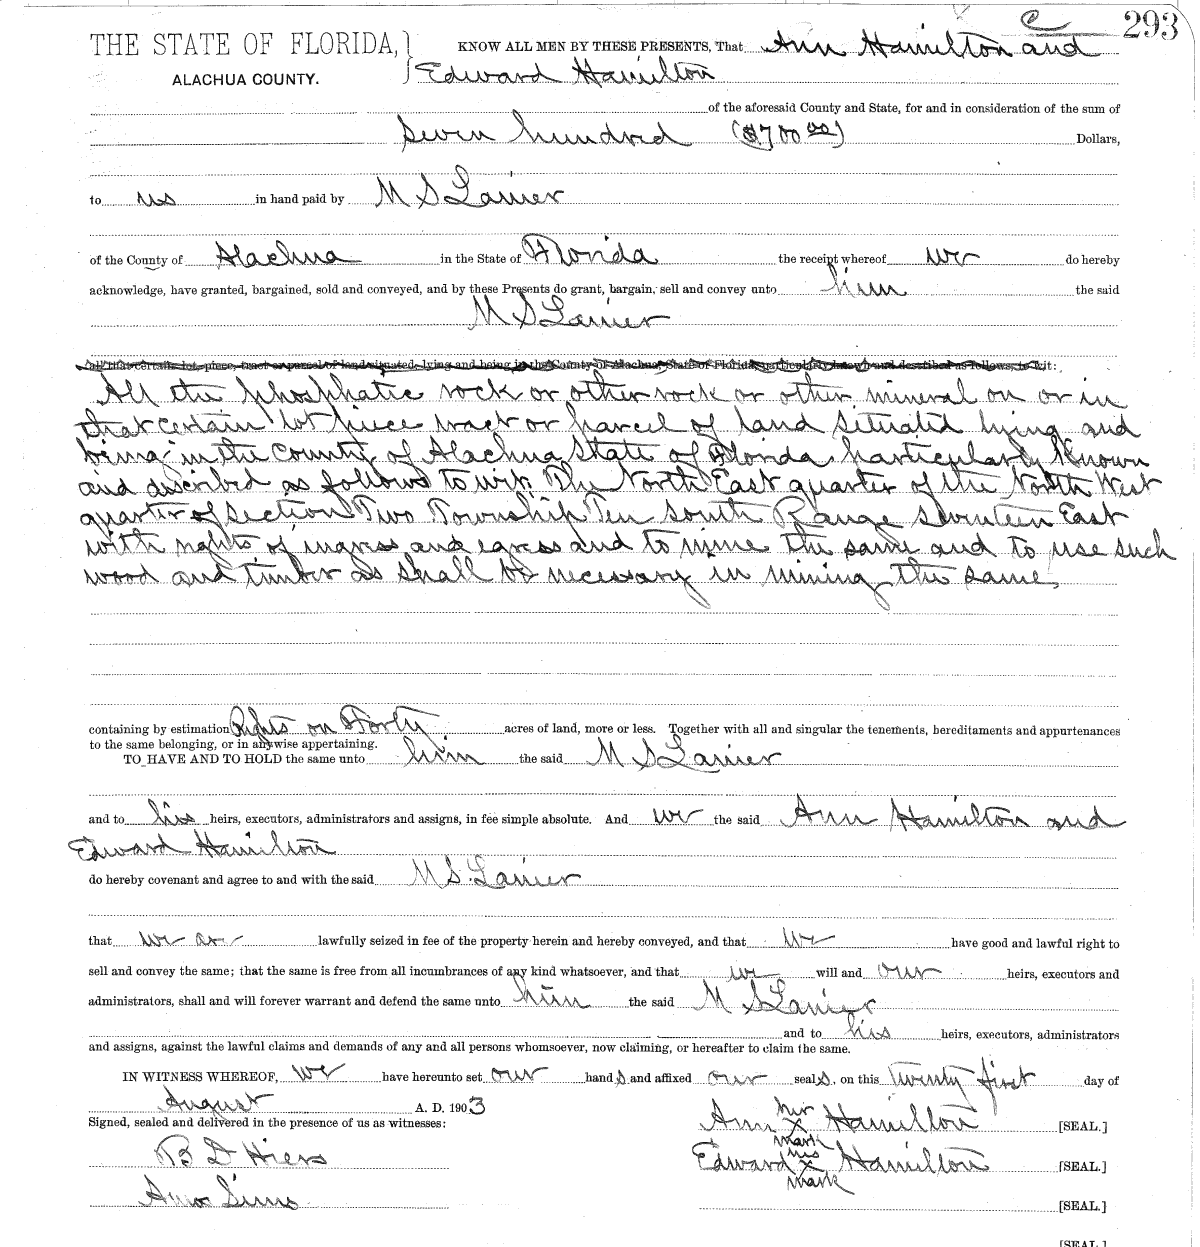 C 293
THE STATE OF FLORIDA, } KNOW ALL MEN BY THESE PRESENTS, That Ann Hamilton and
ALACHUA COUNTY. Edward Hamilton
of the aforesaid County and State, for and in consideration of the sum of
Seven hundred ($700.00) Dollars,
to us in hand paid by M S Lanier
of the County of Alachua in the State of Florida the receipt whereof we do hereby
acknowledge, have granted, bargained, sold and conveyed, and by these Presents do grant, bargain, sell and convey unto him the said
M S Lanier
all that certain lot, piece, tract or parcel of land situated, lying and being in the County of Alachua, State of Florida, particularly known and described as follows, to wit:
All the phosphatic rock or other rock or other mineral on or in
that certain lot piece tract or parcel of land situated lying and
being in the County of Alachua State of Florida particularly Known
and discribed as follows to wit. The North East quarter of the North West
quarter of Section Two Township Ten South Range Seventeen East
with rights of ingress and egress and to mine the same and to use such
wood and timber as shall be necessary in mining the same,
containing by estimation Rights on Forty acres of land, more or less. Together with all and singular the tenements, hereditaments and appurtenances
to the same belonging, or in anywise appertaining.
TO HAVE AND TO HOLD the same unto him the said M S Lanier
and to his heirs, executors, administrators and assigns, in fee simple absolute. And we the said Ann Hamilton and
Edward Hamilton
do hereby covenant and agree to and with the said M S. Lanier
that we are lawfully seized in fee of the property herein and hereby conveyed, and that we have good and lawful right to
sell and convey the same; that the same is free from all incumbrances of any kind whatsoever, and that we will and our heirs, executors and
administrators, shall and will forever warrant and defend the same unto him the said M S Lanier
and to his heirs, executors, administrators
and assigns, against the lawful claims and demands of any and all persons whomsoever, now claiming, or hereafter to claim the same.
IN WITNESS WHEREOF, we have hereunto set our hands and affixed our seals, on this Twenty first day of
August A. D. 1903
Signed, sealed and delivered in the presence of us as witnesses:
Ann her x mark Hamilton [SEAL.]
B D Hiers
Edward his x mark Hamilton [SEAL.]
Sims
[SEAL.]
[SEAL.]